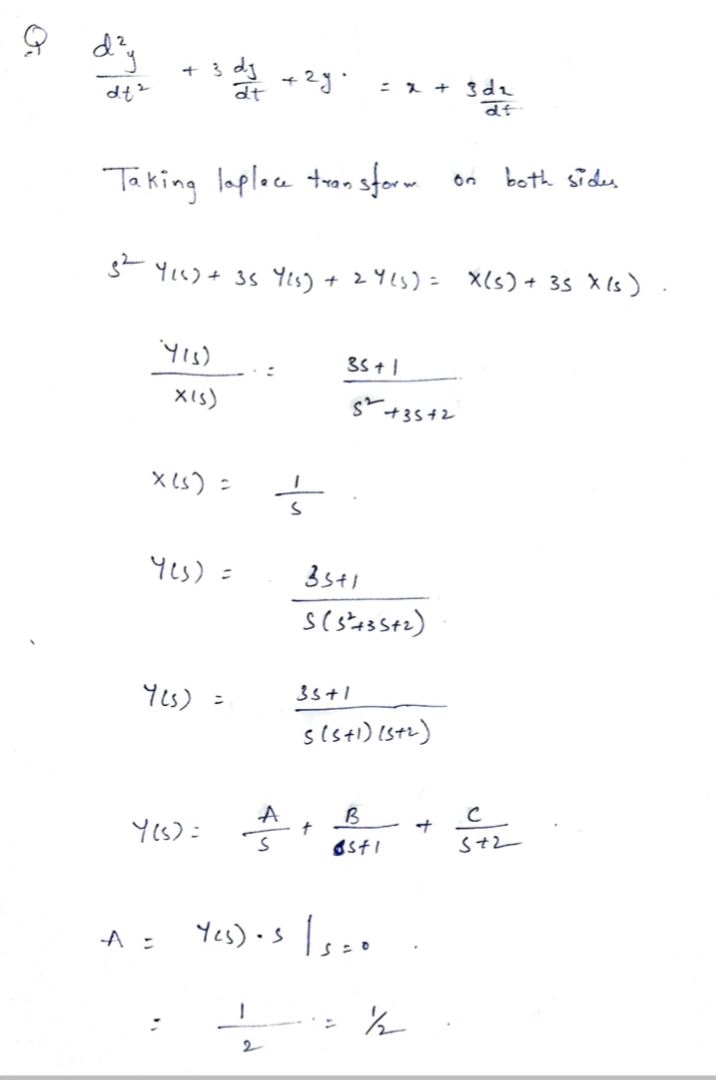 Q d²y/dt² + 3 dy/dt + 2y = x + 3dx/dt
Taking laplace transform on both sides
s² Y(s) + 3s Y(s) + 2 Y(s) = X(s) + 3s X(s).
Y(s)/X(s) = (3s+1)/(s²+3s+2)
X(s) = 1/s.
Y(s) = (3s+1)/(s(s²+3s+2))
Y(s) = (3s+1)/(s(s+1)(s+2))
Y(s) = A/s + B/(s+1) + C/(s+2).
A = Y(s)·s |s=0.
= 1/2 = ½.